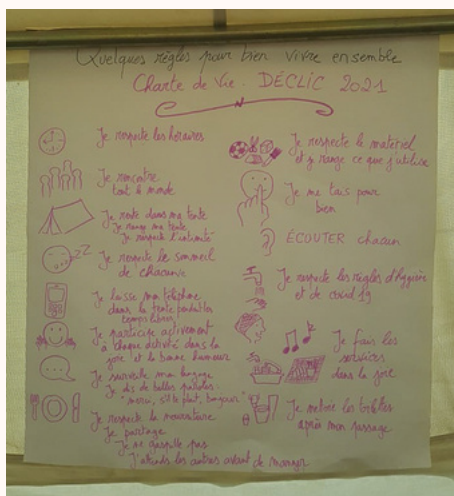 Quelques règles pour bien vivre ensemble
Charte de Vie. DÉCLIC 2021
Je respecte les horaires
Je rencontre
tout le monde
Je reste dans ma tente
Je range ma tente
Je respecte l'intimité
Je respecte le sommeil
de chacun
Je laisse mon téléphone
dans la tente pendant les
temps libres
Je participe activement
à chaque activité dans la
joie et la bonne humeur
Je surveille mon langage
Je dis de belles paroles :
"merci, s'il te plait, bonjour"
Je respecte la nourriture
Je partage
Je ne gaspille pas
J'attends les autres avant de manger
Je respecte le matériel
et je range ce que j'utilise
Je me tais pour
bien
ÉCOUTER chacun
Je respecte les règles d'hygiène
et de covid 19
Je fais les
services
dans la joie
Je les toilettes
après mon passage